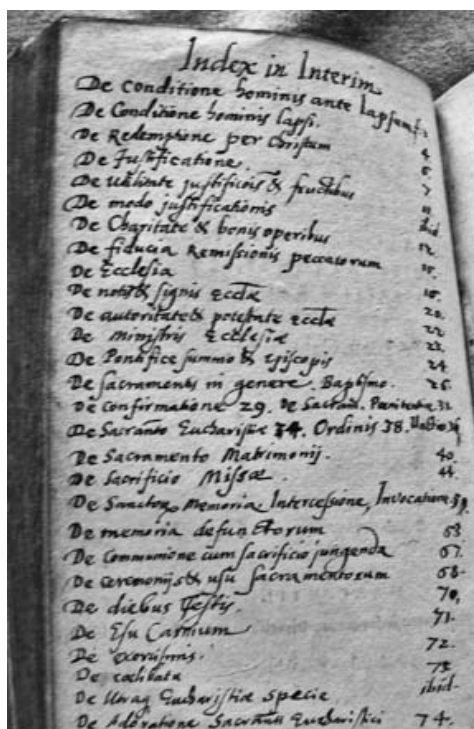 Index in Interim
De conditione hominis ante lapsum f. 2
De Conditione hominis lapsi. 4
De Redemptione per Christum 6
De Justificatione. 7
De utilitate justificois & fructibus 11
De modo justificationis ibid
De Charitate & bonis operibus 12.
De fiducia Remissionis peccatorum 15.
De Ecclesia 16.
De notis & signis Ecclæ 20.
De autoritate & potestate Ecclæ 22
De Ministris Ecclesiæ 23.
De Pontifice summo & Episcopis 24
De sacramentis in genere. Baptismo. 26.
De confirmatione 29. De Sacram. Pœnitentiæ 32
De Sacramto Eucharistiæ 34. Ordinis 38. Unctio 39
De Sacramento Matrimonij. 40.
De Sacrificio Missæ 44.
De Sanctor. Memoria, Intercessione, Invocatione 59.
De memoria defunctorum 63
De Communione cum sacrificio jungenda 67.
De Ceremonijs & usu sacramentorum 68.
De diebus Festis. 70,
De Esu Carnium 71.
De exorcismis. 72.
De cœlibatu 73
De Utraq Eucharistiæ specie ibid.
De Adoratione Sacramti Eucharistici 74.